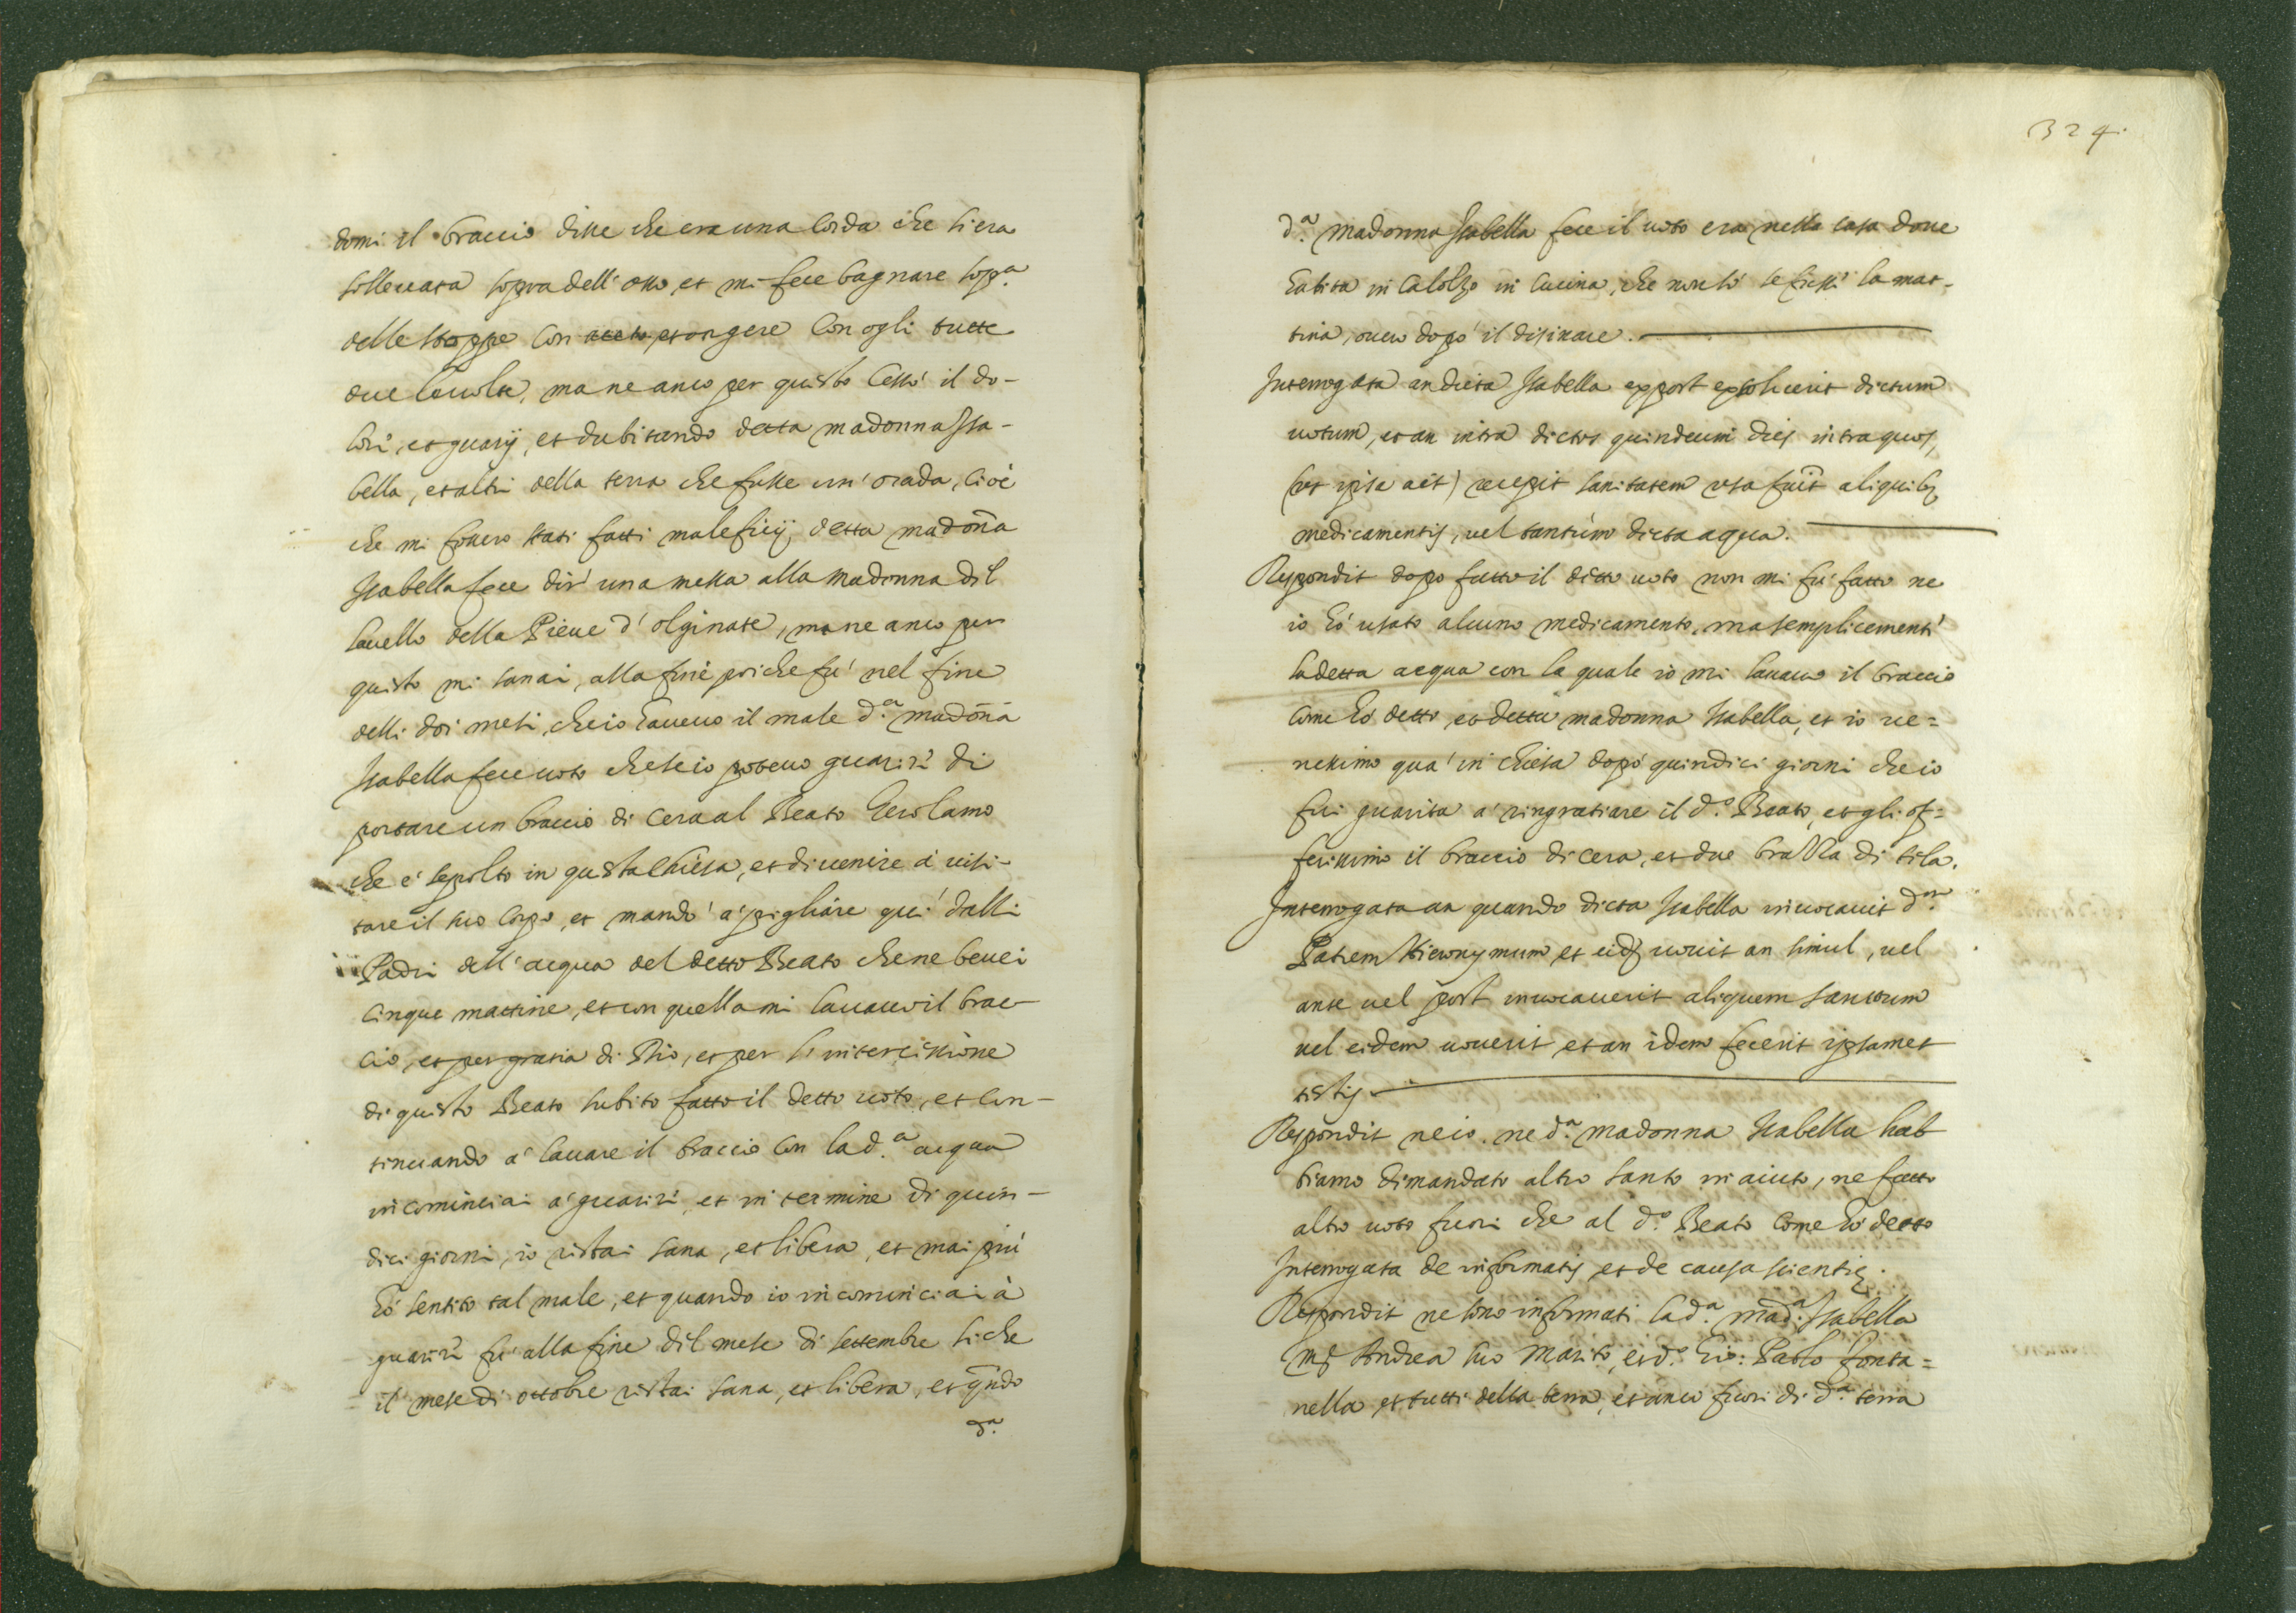 domi il braccio disse che era una corda che si era
solleuata sopra dell'osso, et mi fece bagnare sop.ª
delle stoppe con aceto, et ongere con ogli tutte
due le uolte, ma ne anco per questo cessò il do-
lore, et guarij, et dubitando detta madonna Isa-
bella, et altri della terra che fusse un' orada, cioè
che mi fossero stati fatti maleficij, detta madoña
Isabella fece dir' una messa alla Madonna dil
Lauello della Pieue d' olginate, ma ne anco per
questo mi sanai, alla fine poi che fu' nel fine
delli doi mesi, che io haueuo il male d.ª madoña
Isabella fece uoto che se io poteuo guarire di
portare un braccio di cera al Beato Gerolamo
che è sepolto in questa Chiesa, et di uenire à uisi-
tare il suo corpo, et mandò a' pigliare qui' dalli
Padri dell'acqua del detto Beato che ne beuei
cinque mattine, et con quella mi lauauo il brac-
cio, et per gratia di Dio, et per l'intercissione
di questo Beato subito fatto il detto uoto, et con-
tinuando a' lauare il braccio con la d.ª acqua
incominciai a' guarire, et in termine di quin-
dici giorni, io restai sana, et libera, et mai più
hò sentito tal male, et quando io incominciai à
guarire fu' alla fine dil mese di settembre si che
il mese di ottobre restai sana, et libera, et qñdo
d.ª
324.
d.ª madonna Isabella fece il uoto era nella casa doue
habita in Calolzo in cucina, che non so' se fusse la mat-
tina, ouero dopò il disinare.
Interrogata an dicta Isabella ex post exsoluerit dictum
uotum, et an intra dictos quindecim dies intra quos,
(ut ipsa ait) recepit sanitatem usa fuit aliquib;
medicamentis, uel tantùm dicta aqua.
Respondit dopo fatto il detto uoto non mi fu' fatto ne
io hò usato alcuno medicamento, ma semplicemente
la detta acqua con la quale io mi lauauo il braccio
come hò detto, et detta madonna Isabella, et io ue=
nessimo qua' in chiesa dopò quindici giorni che io
fui guarita a' ringratiare il d.º Beato, et gli of=
ferissimo il braccio di cera, et due brazza di tela.
Interrogata an quando dicta Isabella inuocauit d.m
Patrem Hieronymum et eidẽ uouit an simul, uel
ante uel post inuocauerit aliquem sanctum
uel eidem uouerit et an idem fecerit ipsamet
testis
Respondit ne io. ne d.ª madonna Isabella hab
biamo dimandato altro santo in aiuto, ne fatto
altro uoto fuori che al d.º Beato come hò detto
Interrogata de informatis et de causa scientię.
Respondit ne sono informati la d.ª mad.ª Isabella
Andrea suo marito, et d.º Gio: Paolo fonta=
nella, et tutti della terra, et anco fuori di d.ª terra